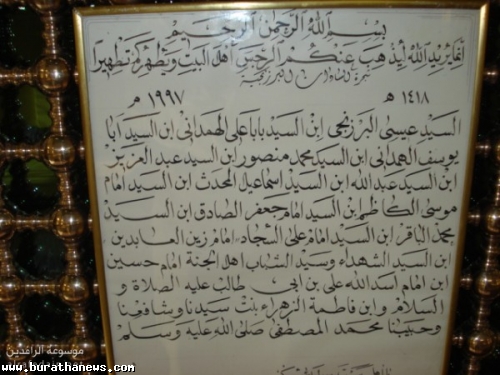 بسم الله الرحمن الرحيم
انما يريد الله ليذهب عنكم الرجس أهل البيت ويطهركم تطهيرا
١٤١٨ هـ ١٩٩٧ م
السيد عيسى البرزنجي ابن السيد بابا علي الهمداني ابن السيد ابا
يوسف الهمداني ابن السيد محمد منصور ابن السيد عبد العزيز
ابن السيد عبد الله ابن السيد اسماعيل المحدث ابن السيد امام
موسى الكاظم ابن السيد امام جعفر الصادق ابن السيد
محمد الباقر ابن السيد امام علي السجاد امام زين العابدين
ابن السيد الشهداء وسيد الشباب اهل الجنة امام حسين
ابن امام اسد الله علي بن ابي طالب عليه الصلاة و
السلام وابن فاطمة الزهراء بنت سيدنا وشافعنا
وحبيبنا محمد المصطفى صلى الله عليه وسلم
موسوعة الرافدين
www.burathanews.com